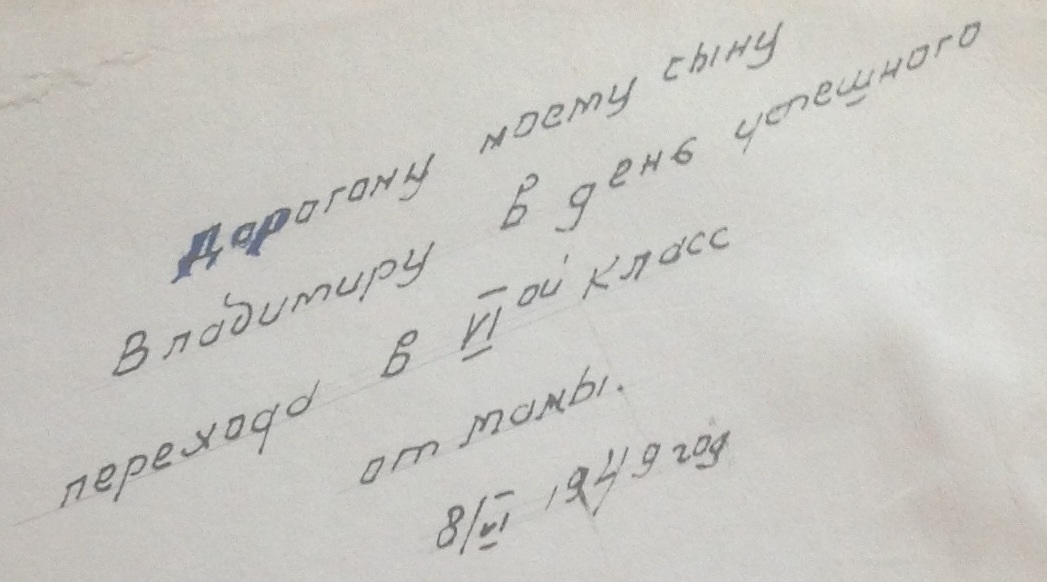 Дарогому моему сыну
Владимиру в день успешного
перехода в VIой класс
от мамы.
8/VI 1949 год